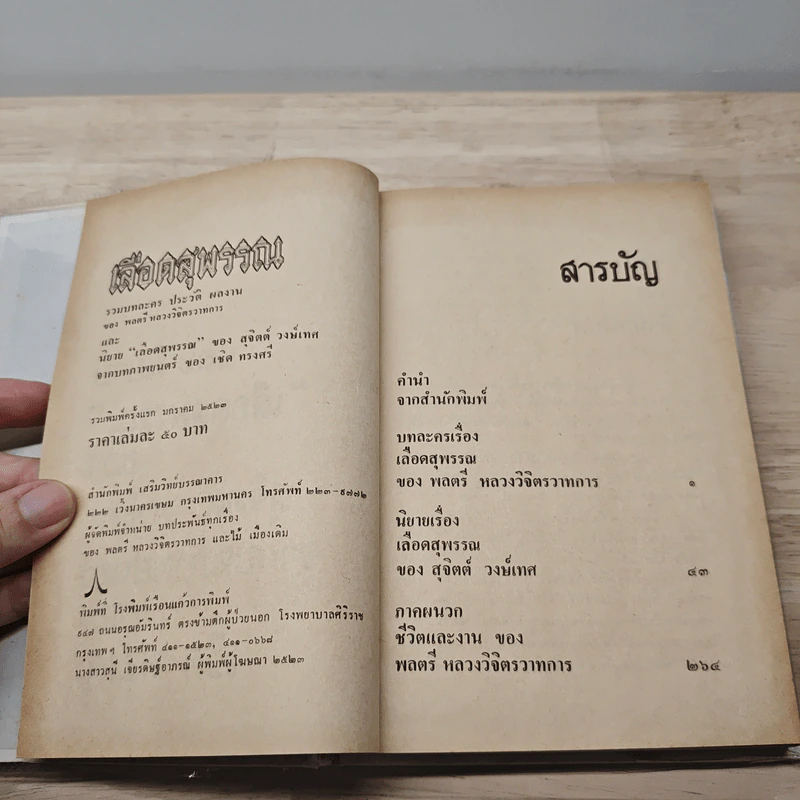 เลือดสุพรรณ
รวมบทละคร ประวัติ ผลงาน
ของ พลตรี หลวงวิจิตรวาทการ
และ
นิยาย “เลือดสุพรรณ” ของ สุจิตต์ วงษ์เทศ
จากบทภาพยนตร์ ของ เชิด ทรงศรี
รวมพิมพ์ครั้งแรก มกราคม ๒๕๒๓
ราคาเล่มละ ๕๐ บาท
สำนักพิมพ์ เสริมวิทย์บรรณาคาร
๒๒๒ เวิ้งนาครเขษม กรุงเทพมหานคร โทรศัพท์ ๒๒๓-๙๗๗๒
ผู้จัดพิมพ์จำหน่าย บทประพันธ์ทุกเรื่อง
ของ พลตรี หลวงวิจิตรวาทการ และไม้ เมืองเดิม
พิมพ์ที่ โรงพิมพ์เรือนแก้วการพิมพ์
๙๔๗ ถนนอรุณอัมรินทร์ ตรงข้ามตึกผู้ป่วยนอก โรงพยาบาลศิริราช
กรุงเทพฯ โทรศัพท์ ๔๑๑-๑๕๒๓, ๔๑๑-๐๖๖๘
นางสาวสุนี เจียรดิษฐ์อาภรณ์ ผู้พิมพ์ผู้โฆษณา ๒๕๒๓
สารบัญ
คำนำ
จากสำนักพิมพ์
บทละครเรื่อง
เลือดสุพรรณ
ของ พลตรี หลวงวิจิตรวาทการ ๑
นิยายเรื่อง
เลือดสุพรรณ
ของ สุจิตต์ วงษ์เทศ ๔๓
ภาคผนวก
ชีวิตและงาน ของ
พลตรี หลวงวิจิตรวาทการ ๒๖๔